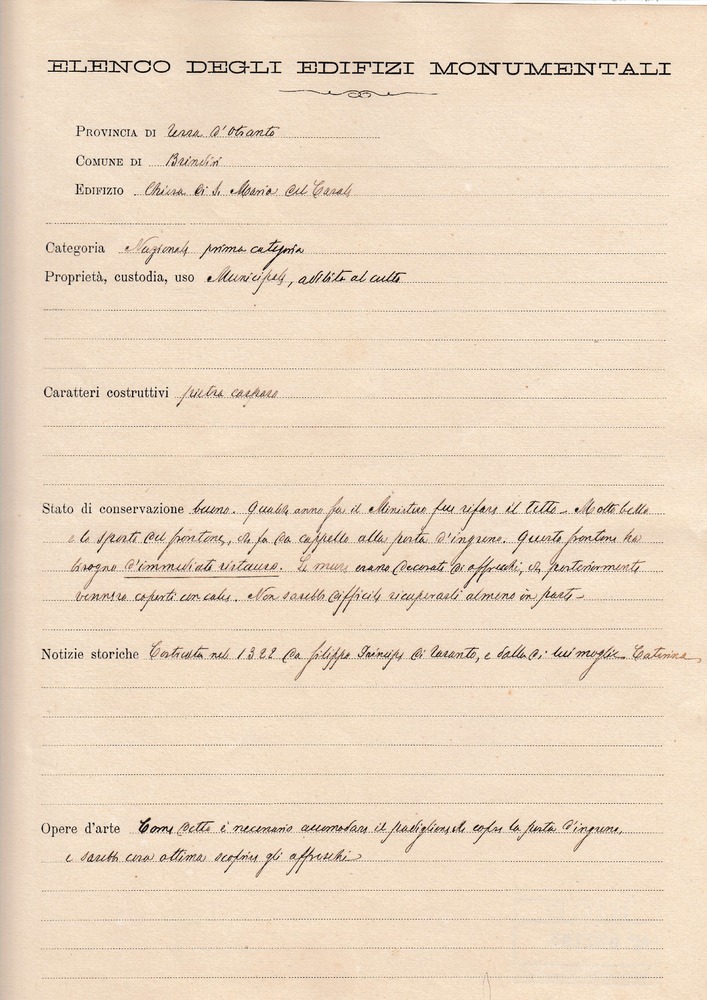 ELENCO DEGLI EDIFIZI MONUMENTALI
PROVINCIA DI Terra d'Otranto
COMUNE DI Brindisi
EDIFIZIO Chiesa di S. Maria del Casale
Categoria Nazionale prima categoria
Proprietà, custodia, uso Municipale, adibita al culto
Caratteri costruttivi pietra carparo
Stato di conservazione buono. Qualche anno fa il Ministero fece rifare il tetto – Molto bello
è lo sporto del frontone, che fa da cappello alla porta d'ingresso. Questo frontone ha
bisogno d'immediato restauro. Le mura erano decorate di affreschi, che posteriormente
vennero coperti con calce. Non sarebbe difficile ricuperarli almeno in parte –
Notizie storiche Costruita nel 1322 da Filippo Principe di Taranto, e dalla di lui moglie Caterina
Opere d'arte Come detto è necessario accomodare il padiglione che copre la porta d'ingresso,
e sarebbe cosa ottima scoprire gli affreschi